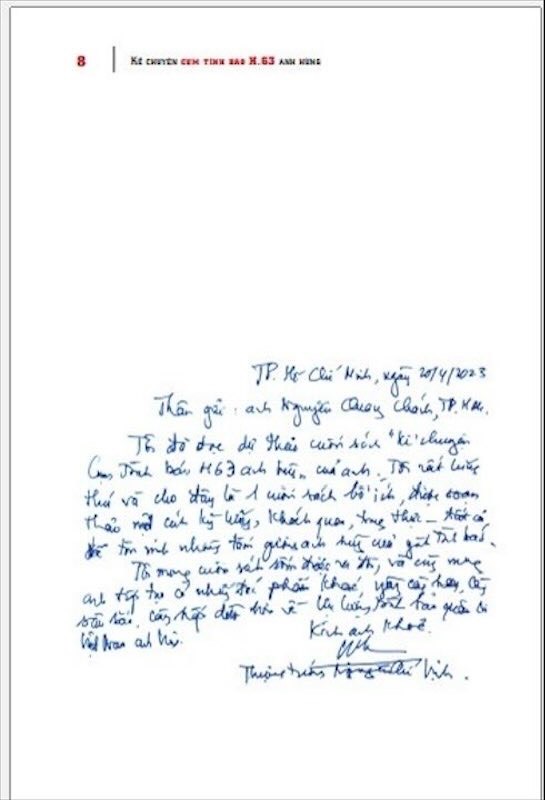 8 KỂ CHUYỆN CỤM TÌNH BÁO H.63 ANH HÙNG
TP. Hồ Chí Minh, ngày 20/4/2023
Thân gửi: anh Nguyễn Quang Chánh, TP. HCM.
Tôi đã đọc dự thảo cuốn sách "Kể chuyện
Cụm Tình báo H63 anh hùng" của anh. Tôi rất hứng
thú và cho đây là 1 cuốn sách bổ ích, được soạn
thảo một cách kỹ lưỡng, khách quan, trung thực – tất cả
để tôn vinh những tấm gương anh hùng của ngành Tình báo.
Tôi mong cuốn sách sớm được ra đời, và cũng mong
anh tiếp tục có những tác phẩm khác, ngày càng hay, càng
sâu sắc, càng hấp dẫn hơn về lực lượng tình báo quân đội
Việt Nam anh hùng.
Kính anh khoẻ.
Thượng tướng Nguyễn Chí Vịnh.